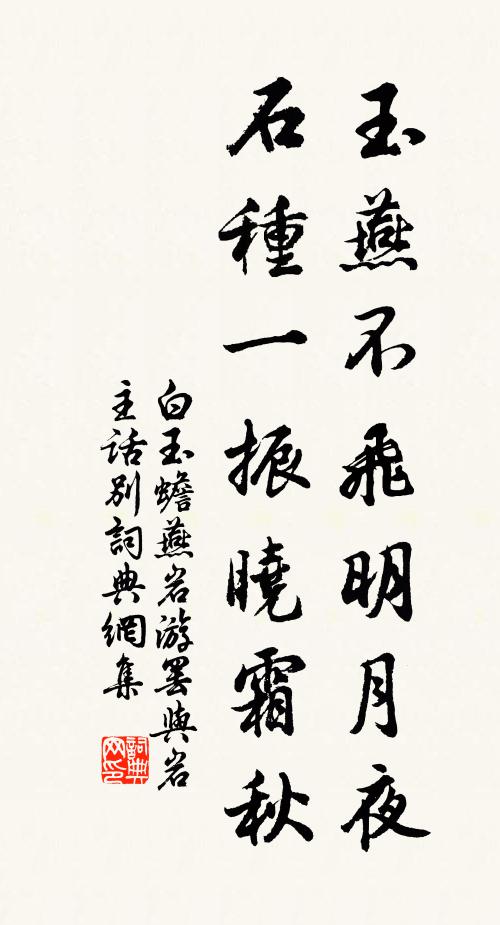 玉燕不飛明月夜
石種一振曉霜秋
白玉蟾燕岩游罢與岩
主話別詞典網集
詞典